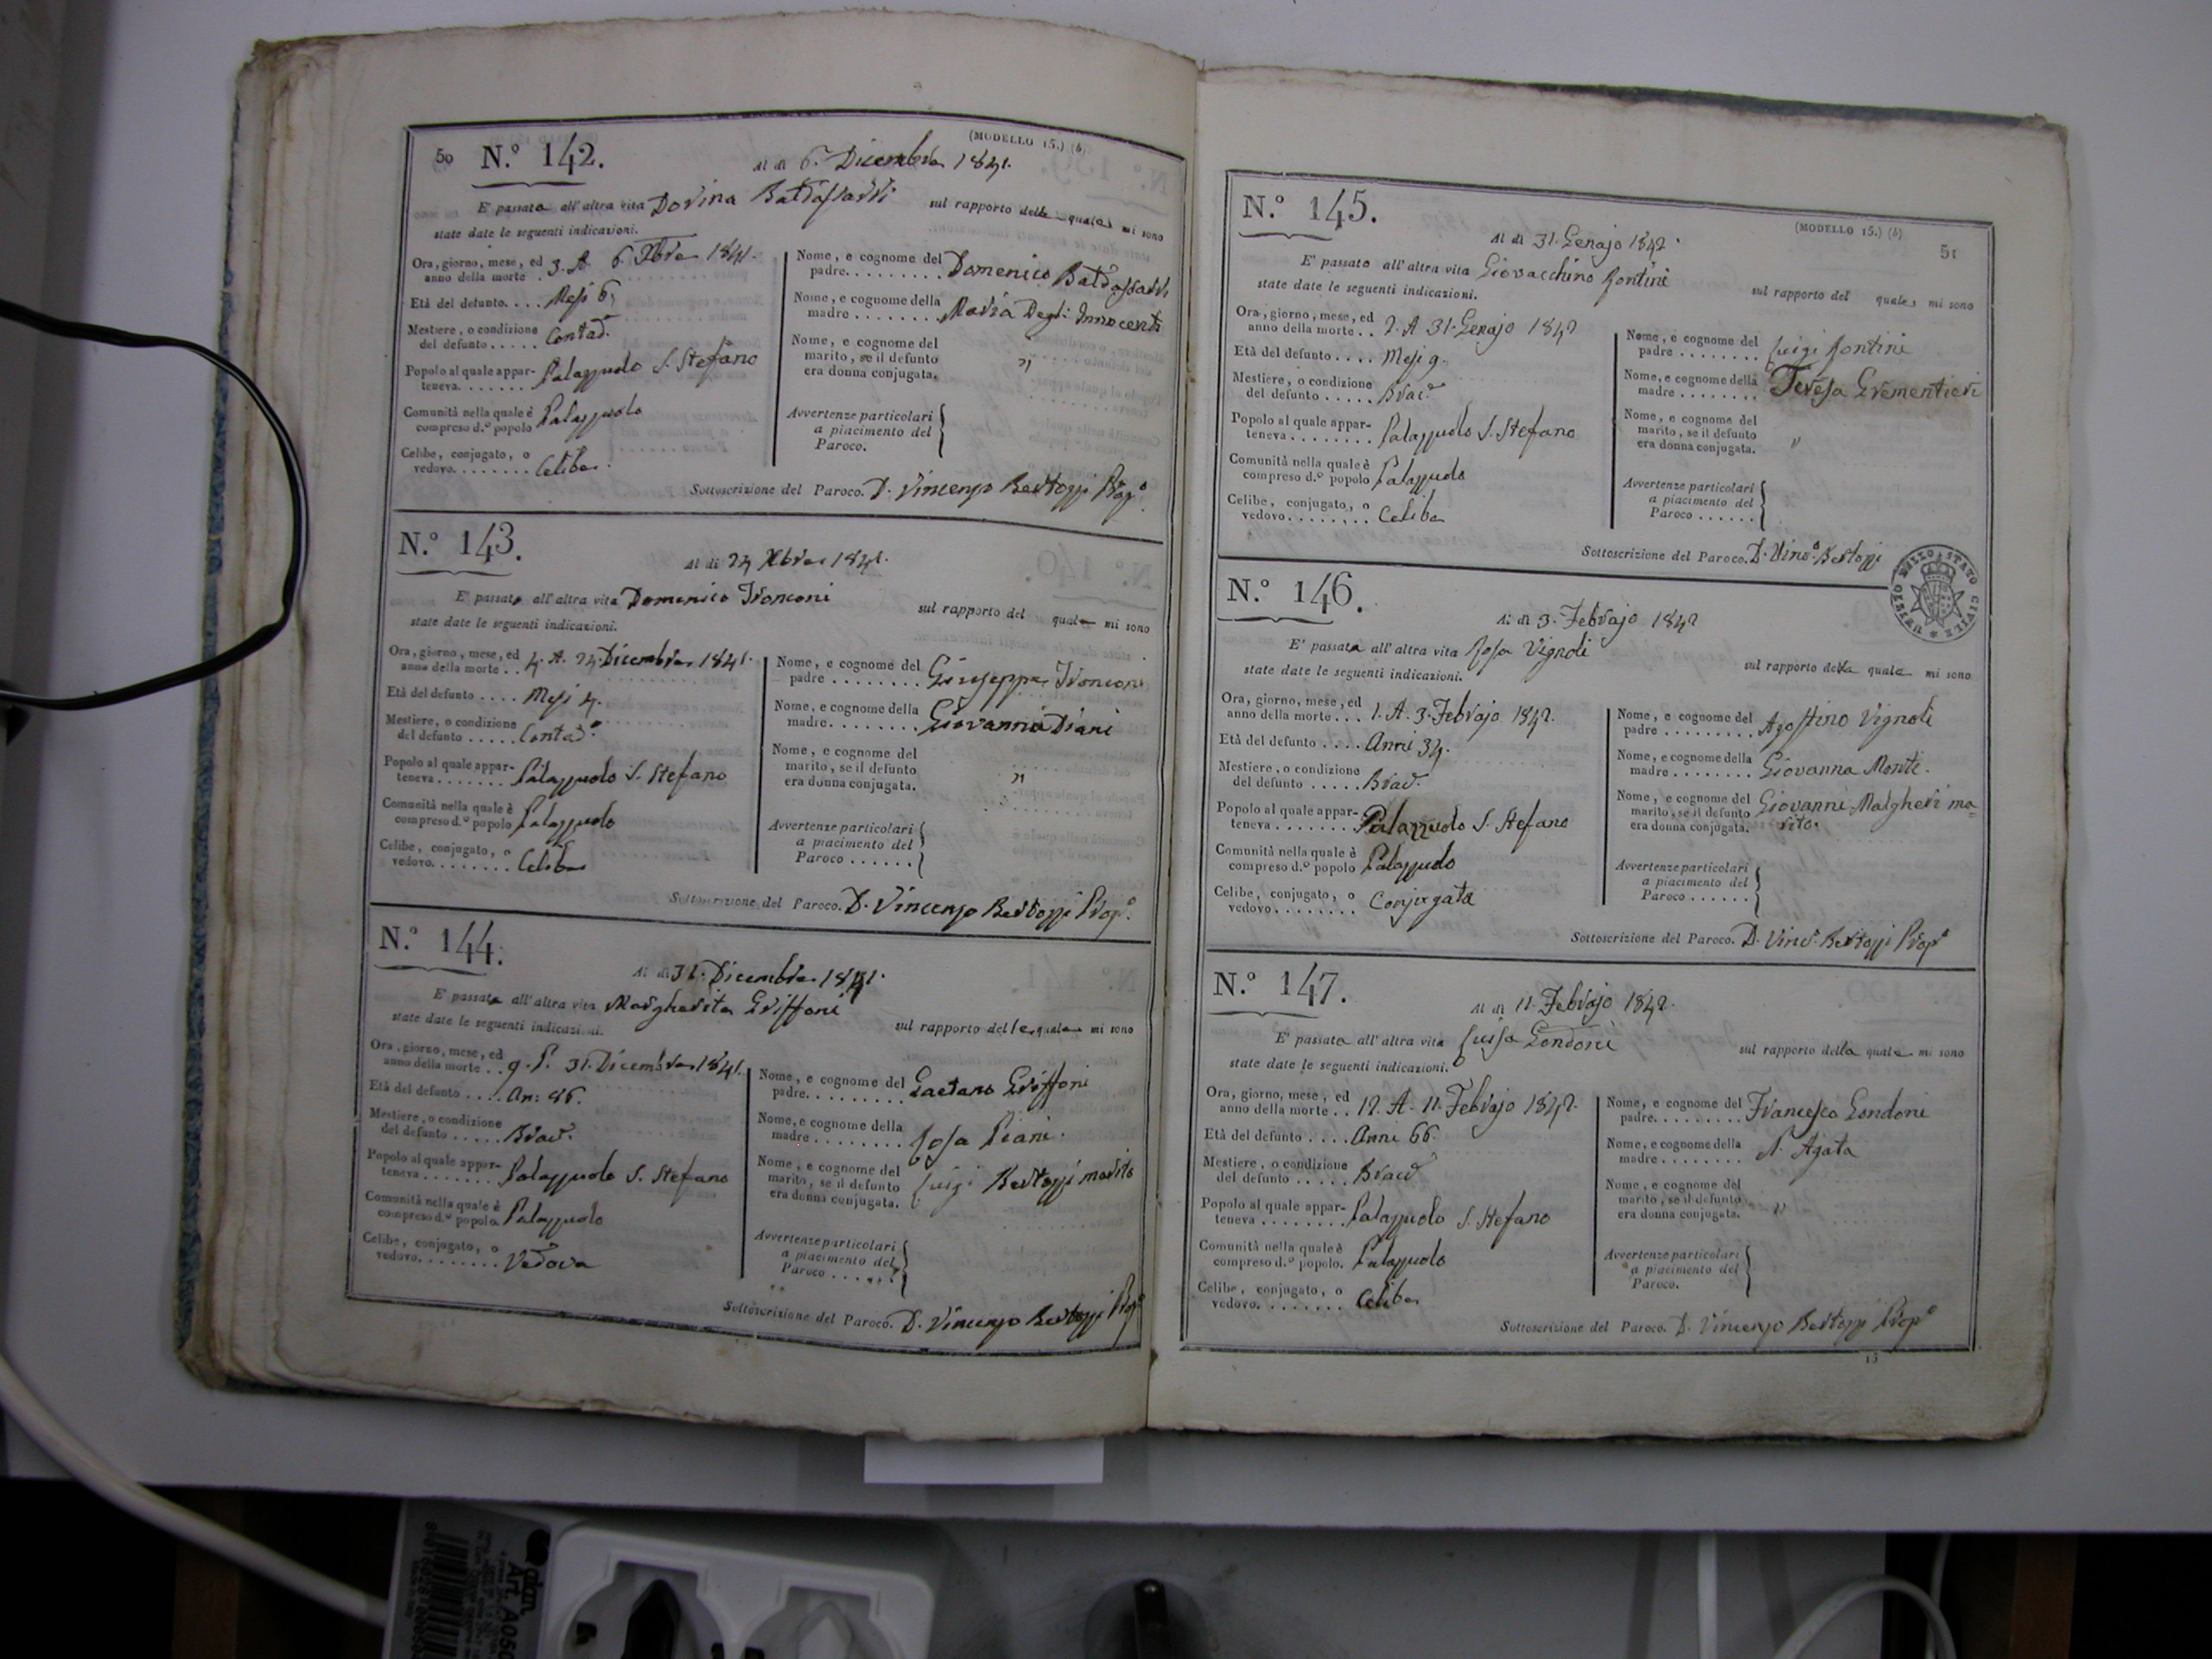 50 N.º 142. (MODELLO 15.) (b)
Al dì 6. Dicembre 1841.
E' passata all'altra vita Dorina Baldassarri sul rapporto della quale mi sono
state date le seguenti indicazioni.
Ora, giorno, mese, ed anno della morte . 3. A. 6 Xbre 1841.
Età del defunto. . . . Mesi 6,
Mestiere, o condizione del defunto . . . . . Contad.
Popolo al quale apparteneva. . . . . . . Palazzuolo S. Stefano
Comunità nella quale è compreso d.º popolo Palazzuolo
Celibe, conjugato, o vedovo. . . . . . . . Celibe.
Nome, e cognome del padre. . . . . . . . . Domenico Baldassarri
Nome, e cognome della madre . . . . . . . . Maria Degl'Innocenti
Nome, e cognome del marito, se il defunto era donna conjugata. "
Avvertenze particolari a piacimento del Paroco.
Sottoscrizione del Paroco. D. Vincenzo Bertozzi Prop.º
N.º 143.
Al dì 24 Xbre 1841.
E' passato all'altra vita Domenico Tronconi sul rapporto del quale mi sono
state date le seguenti indicazioni.
Ora, giorno, mese, ed anno della morte . . 4. A. 24. Dicembre 1841.
Età del defunto . . . . Mesi 4.
Mestiere, o condizione del defunto . . . . . Contad.º
Popolo al quale apparteneva . . . . . . . Palazzuolo S. Stefano
Comunità nella quale è compreso d.º popolo Palazzuolo
Celibe, conjugato, o vedovo. . . . . . . . Celibe
Nome, e cognome del padre . . . . . . . . Giuseppe Tronconi
Nome, e cognome della madre. . . . . . . . Giovanna Diani
Nome, e cognome del marito, se il defunto era donna conjugata. "
Avvertenze particolari a piacimento del Paroco . . . . . .
Sottoscrizione del Paroco. D. Vincenzo Bertozzi Prop.º
N.º 144.
Al dì 31. Dicembre 1841.
E' passata all'altra vita Margherita Griffoni sul rapporto della quale mi sono
state date le seguenti indicazioni.
Ora, giorno, mese, ed anno della morte . . 9. P. 31. Dicembre 1841.
Età del defunto . . . . An: 86.
Mestiere, o condizione del defunto . . . . . Brac.
Popolo al quale apparteneva . . . . . . . Palazzuolo S. Stefano
Comunità nella quale è compreso d.º popolo. Palazzuolo
Celibe, conjugato, o vedovo. . . . . . . . Vedova
Nome, e cognome del padre. . . . . . . . . Gaetano Griffoni
Nome, e cognome della madre . . . . . . . . Rosa Piani.
Nome, e cognome del marito, se il defunto era donna conjugata. Luigi Bertozzi marito
Avvertenze particolari a piacimento del Paroco . . . . . .
Sottoscrizione del Paroco. D. Vincenzo Bertozzi Prop.º
N.º 145. (MODELLO 15.) (b)
51
Al dì 31. Genajo 1842.
E' passato all'altra vita Giovacchino Rontini sul rapporto del quale mi sono
state date le seguenti indicazioni.
Ora, giorno, mese, ed anno della morte . . 2. A 31. Genajo 1842
Età del defunto . . . . Mesi 9.
Mestiere, o condizione del defunto . . . . . Brac.
Popolo al quale apparteneva . . . . . . . . Palazzuolo S. Stefano
Comunità nella quale è compreso d.º popolo Palazzuolo
Celibe, conjugato, o vedovo. . . . . . . . Celibe
Nome, e cognome del padre . . . . . . . . Luigi Rontini
Nome, e cognome della madre . . . . . . . . Teresa Grementieri
Nome, e cognome del marito, se il defunto era donna conjugata. "
Avvertenze particolari a piacimento del Paroco . . . . . .
Sottoscrizione del Paroco. D. Vinc.º Bertozzi
UFFIZIO DELLO STATO CIVILE
N.º 146.
Al dì 3. Febrajo 1842
E' passata all'altra vita Rosa Vignoli sul rapporto della quale mi sono
state date le seguenti indicazioni.
Ora, giorno, mese, ed anno della morte . . . 1. A. 3. Febrajo 1842.
Età del defunto . . . . Anni 34.
Mestiere, o condizione del defunto . . . . . Brac.
Popolo al quale apparteneva . . . . . . . Palazzuolo S. Stefano
Comunità nella quale è compreso d.º popolo Palazzuolo
Celibe, conjugato, o vedovo. . . . . . . . Conjugata
Nome, e cognome del padre . . . . . . . . . Agostino Vignoli
Nome, e cognome della madre . . . . . . . . Giovanna Monti.
Nome, e cognome del marito, se il defunto era donna conjugata. Giovanni Malgheri marito.
Avvertenze particolari a piacimento del Paroco . . . . . .
Sottoscrizione del Paroco. D. Vinc.º Bertozzi Prop.º
N.º 147.
Al dì 11. Febrajo 1842.
E' passata all'altra vita Luisa Londoni sul rapporto della quale mi sono
state date le seguenti indicazioni.
Ora, giorno, mese, ed anno della morte . . 12. A. 11. Febrajo 1842.
Età del defunto . . . . Anni 66.
Mestiere, o condizione del defunto . . . . . Brac.
Popolo al quale apparteneva . . . . . . . . Palazzuolo S. Stefano
Comunità nella quale è compreso d.º popolo. Palazzuolo
Celibe, conjugato, o vedovo. . . . . . . . Celibe
Nome, e cognome del padre. . . . . . . . . Francesco Londoni
Nome, e cognome della madre . . . . . . . . N. Agata
Nome, e cognome del marito, se il defunto era donna conjugata. "
Avvertenze particolari a piacimento del Paroco.
Sottoscrizione del Paroco. D. Vincenzo Bertozzi Prop.º
15